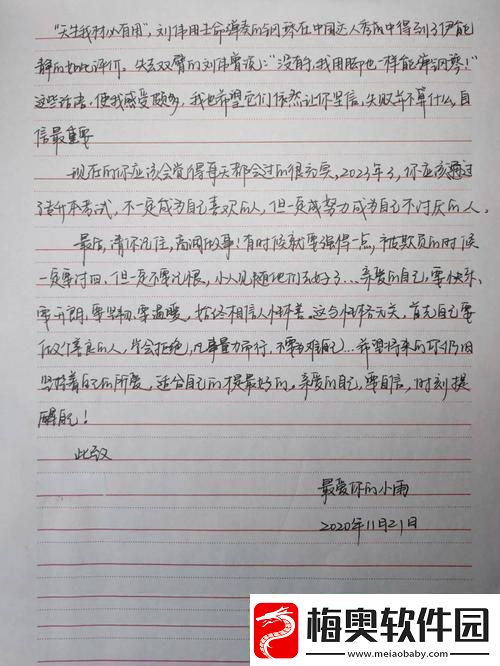 "天生我材必有用",刘伟用生命弹奏的钢琴在中国达人秀中得到了伊能
静的如此评价。失去双臂的刘伟曾说:"没有手,我用脚也一样能弹钢琴!"
这些话语,使我感受颇多,我也希望它们依然让你坚信,失败并不算什么,自
信最重要
现在的你应该会觉得每天都会过的很充实,2023年了,你应该通过
专升本考试,不一定成为自己喜欢的人,但一定成努力成为自己不讨厌的人。
最后,请你记住,高调做事!有时候就要强得一点,被欺负的时候
一定要讨回,但一定不要记恨,小人见随他们去好了…亲爱的自己,要快乐、
要开朗、要坚韧、要温暖,始终相信人性本善。这与性格无关,首先自己要
做个善良的人,学会拒绝,凡事量力而行,不要为难自己…希望将来的你仍旧
坚持着自己的所爱,适合自己的才是最好的。亲爱的自己,要自信,时刻提
醒自己!
此致
最爱你的小雨
2020年11月21日
梅奥软件园
www.meiaobaby.com